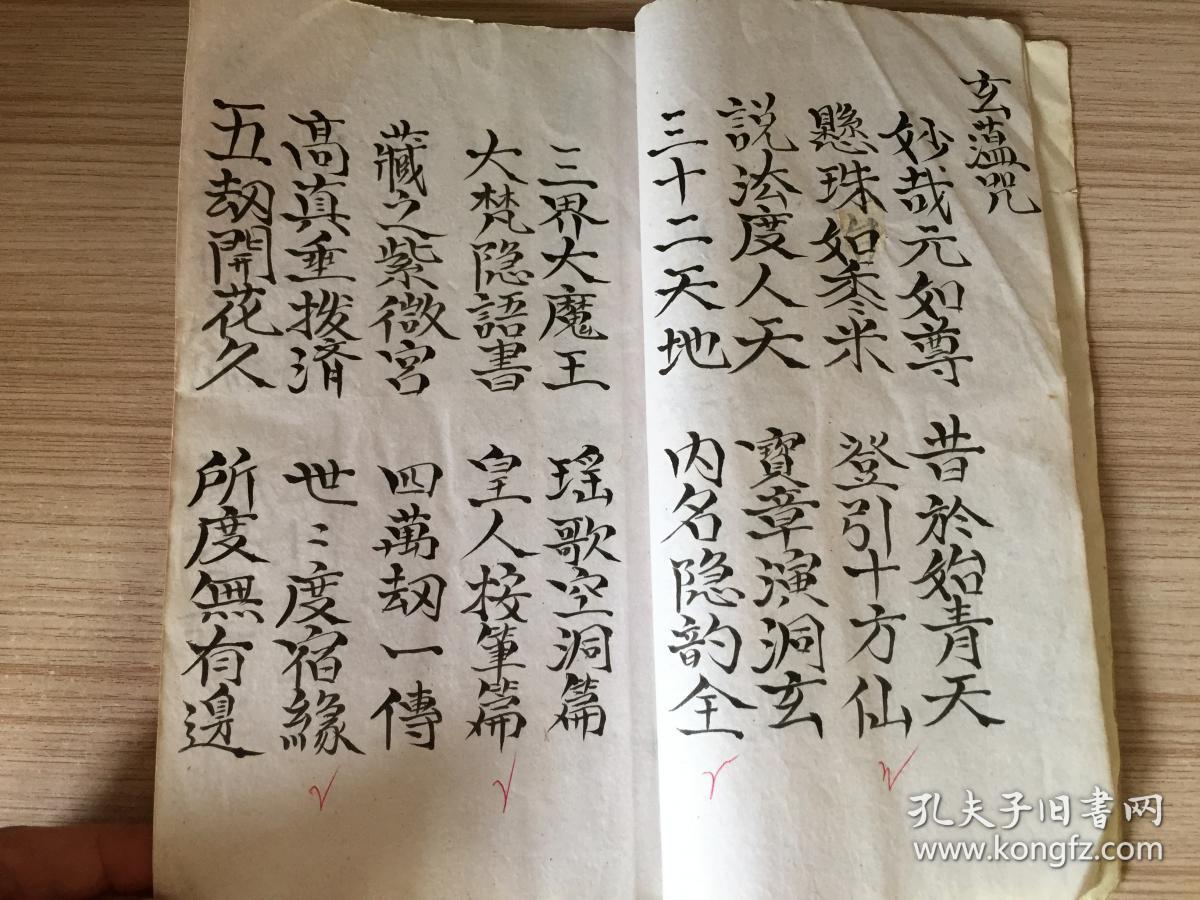 玄蕴咒
妙哉元如尊 昔於始青天
懸珠如黍米 登引十方仙
説法度人天 寶章演洞玄
三十二天地 内名隐韵全
三界大魔王 瑶歌空洞篇
大梵隐語書 皇人按筆篇
藏之紫微宮 四萬刼一傳
高真垂拨済 世〻度宿緣
五刼開花久 所度無有邊
孔夫子旧書网
www.kongfz.com